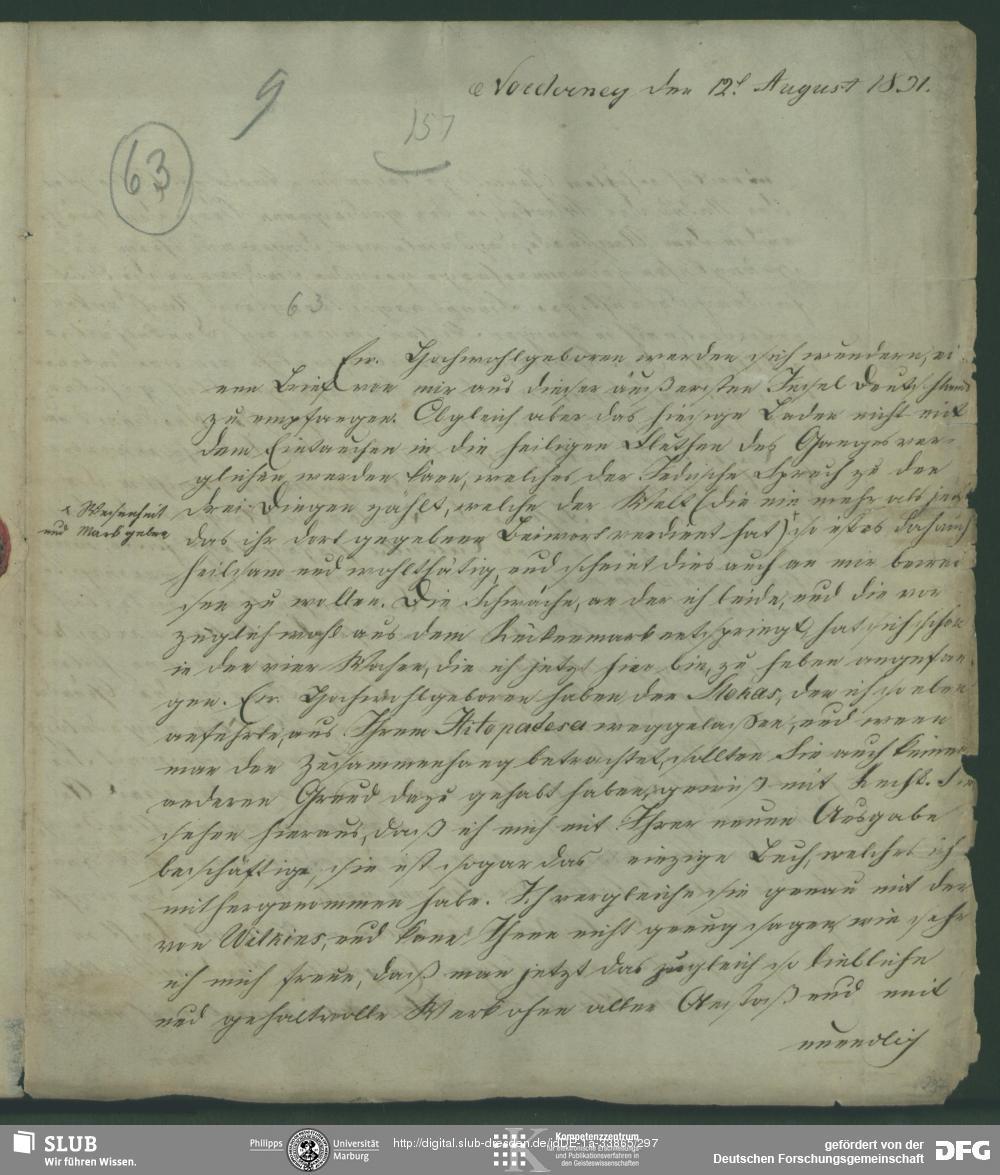 Norderney den 12t. August 1831.
9
157
63
63
Ew. Hochwohlgeboren werden sich wundern, ei-
nen Brief von mir aus dieser äußersten Insel Deutschlands
zu empfangen. Obgleich aber das hiesige Baden nicht mit
dem Eintauchen in die heiligen Fluthen des Ganges ver-
glichen werden kann, welches der Indische Spruch zu den
drei Dingen zählt, welche der Welt (die nie mehr als jetzt
x Wesenheit
und Mark geben
das ihr dort gegebene Beiwort verdient hat) so ist es doch
heilsam und wohlthätig, und scheint dies auch an mir bewei-
sen zu wollen. Die Schwäche, an der ich leide, und die vor-
züglich wohl aus dem Rückenmark entspringt, hat sich schon
in den vier Wochen, die ich jetzt hier bin, zu heben angefan-
gen. Ew. Hochwohlgeboren haben den Slokas, den ich so eben
anführte, aus Ihrem Hitopadesa weggelassen, und wenn
man den Zusammenhang betrachtet, sollten Sie auch keinen
anderen Grund dazu gehabt haben, gewiß mit Recht. Sie
sehen hieraus, daß ich mich mit Ihrer neuen Ausgabe
beschäftige, sie ist sogar das einzige Buch, welches ich
mithergenommen habe. Ich vergleiche sie genau mit der
von Wilkins, und kann Ihnen nicht genug sagen, wie sehr
ich mich freue, daß man jetzt das zugleich so liebliche
und gehaltvolle Werk ohne allen Anstoß und mit
unendlich
SLUB
Wir führen Wissen.
Philipps Universität
Marburg
http://digital.slub-dresden.de/idDE-1a-33865/297
Kompetenzzentrum
für elektronische Erschließungs-
und Publikationsverfahren in
den Geisteswissenschaften
gefördert von der
Deutschen Forschungsgemeinschaft
DFG